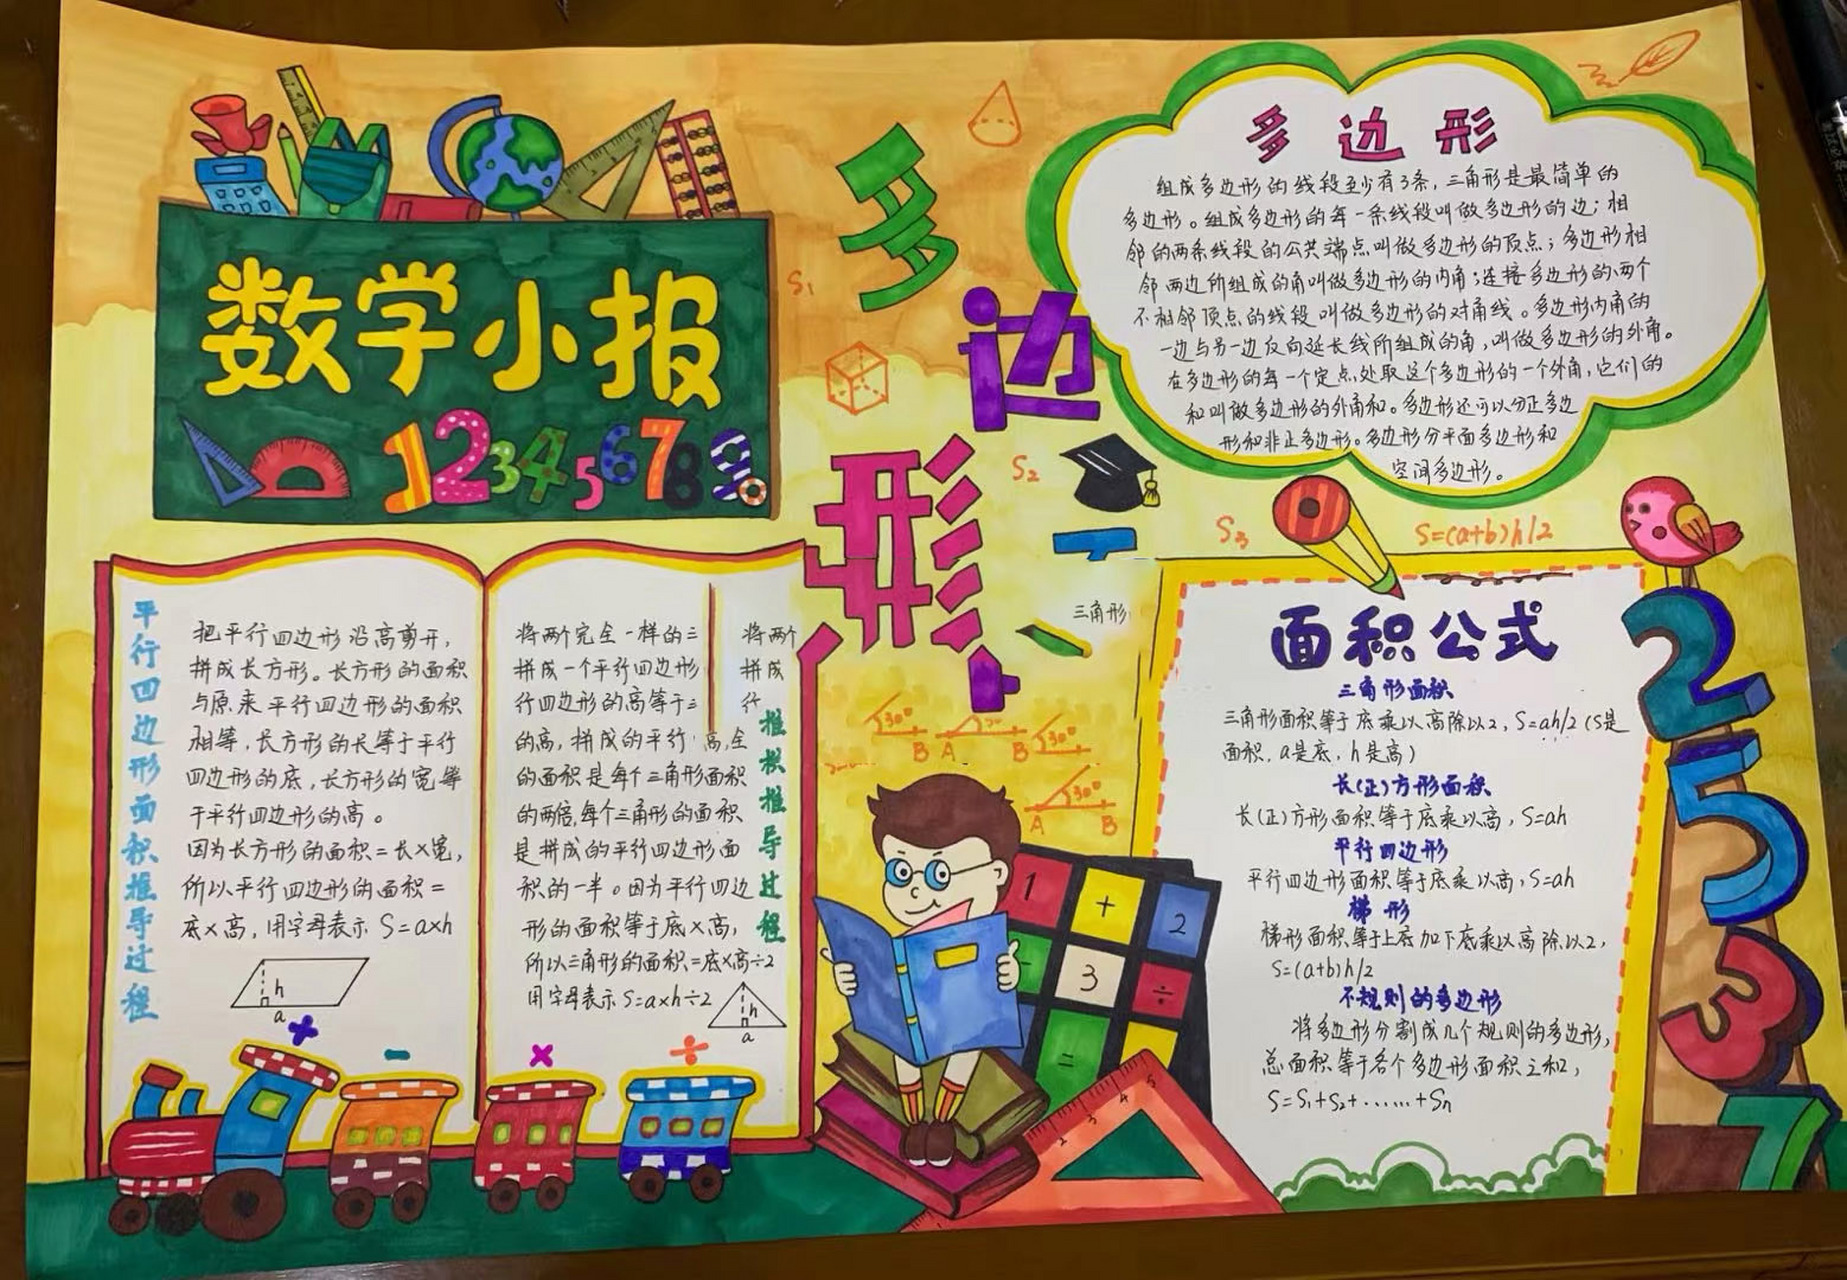 数学小报
123456789
多边形
S₁
S₂
S₃
S=(a+b)h/2
多边形
组成多边形的线段至少有3条,三角形是最简单的
多边形。组成多边形的每一条线段叫做多边形的边;相
邻的两条线段的公共端点叫做多边形的顶点;多边形相
邻两边所组成的角叫做多边形的内角;连接多边形的两个
不相邻顶点的线段叫做多边形的对角线。多边形内角的
一边与另一边反向延长线所组成的角,叫做多边形的外角。
在多边形的每一个定点处取这个多边形的一个外角,它们的
和叫做多边形的外角和。多边形还可以分正多边
形和非正多边形。多边形分平面多边形和
空间多边形。
平行四边形面积推导过程
把平行四边形沿高剪开,
拼成长方形。长方形的面积
与原来平行四边形的面积
相等,长方形的长等于平行
四边形的底,长方形的宽等
于平行四边形的高。
因为长方形的面积=长×宽,
所以平行四边形的面积=
底×高,用字母表示 S=a×h
h
a
将两个完全一样的三
拼成一个平行四边形
行四边形的高等于三
的高,拼成的平行 高,全
的面积是每个三角形面积
的两倍,每个三角形的面积
是拼成的平行四边形面
积的一半。因为平行四边
形的面积等于底×高,
所以三角形的面积=底×高÷2
用字母表示 S=a×h÷2
h
a
将两个
拼成
行
推积推导过程
三角形
30°
B A
B
30°
30°
A B
+ - × ÷
1 + 2
3 ÷
=
2 3 4 5
面积公式
三角形面积
三角形面积等于底乘以高除以2,S=ah/2(S是
面积,a是底,h是高)
长(正)方形面积
长(正)方形面积等于底乘以高,S=ah
平行四边形
平行四边形面积等于底乘以高,S=ah
梯形
梯形面积等于上底加下底乘以高除以2,
S=(a+b)h/2
不规则的多边形
将多边形分割成几个规则的多边形,
总面积等于各个多边形面积之和,
S=S₁+S₂+......+Sn
2
5
3
7